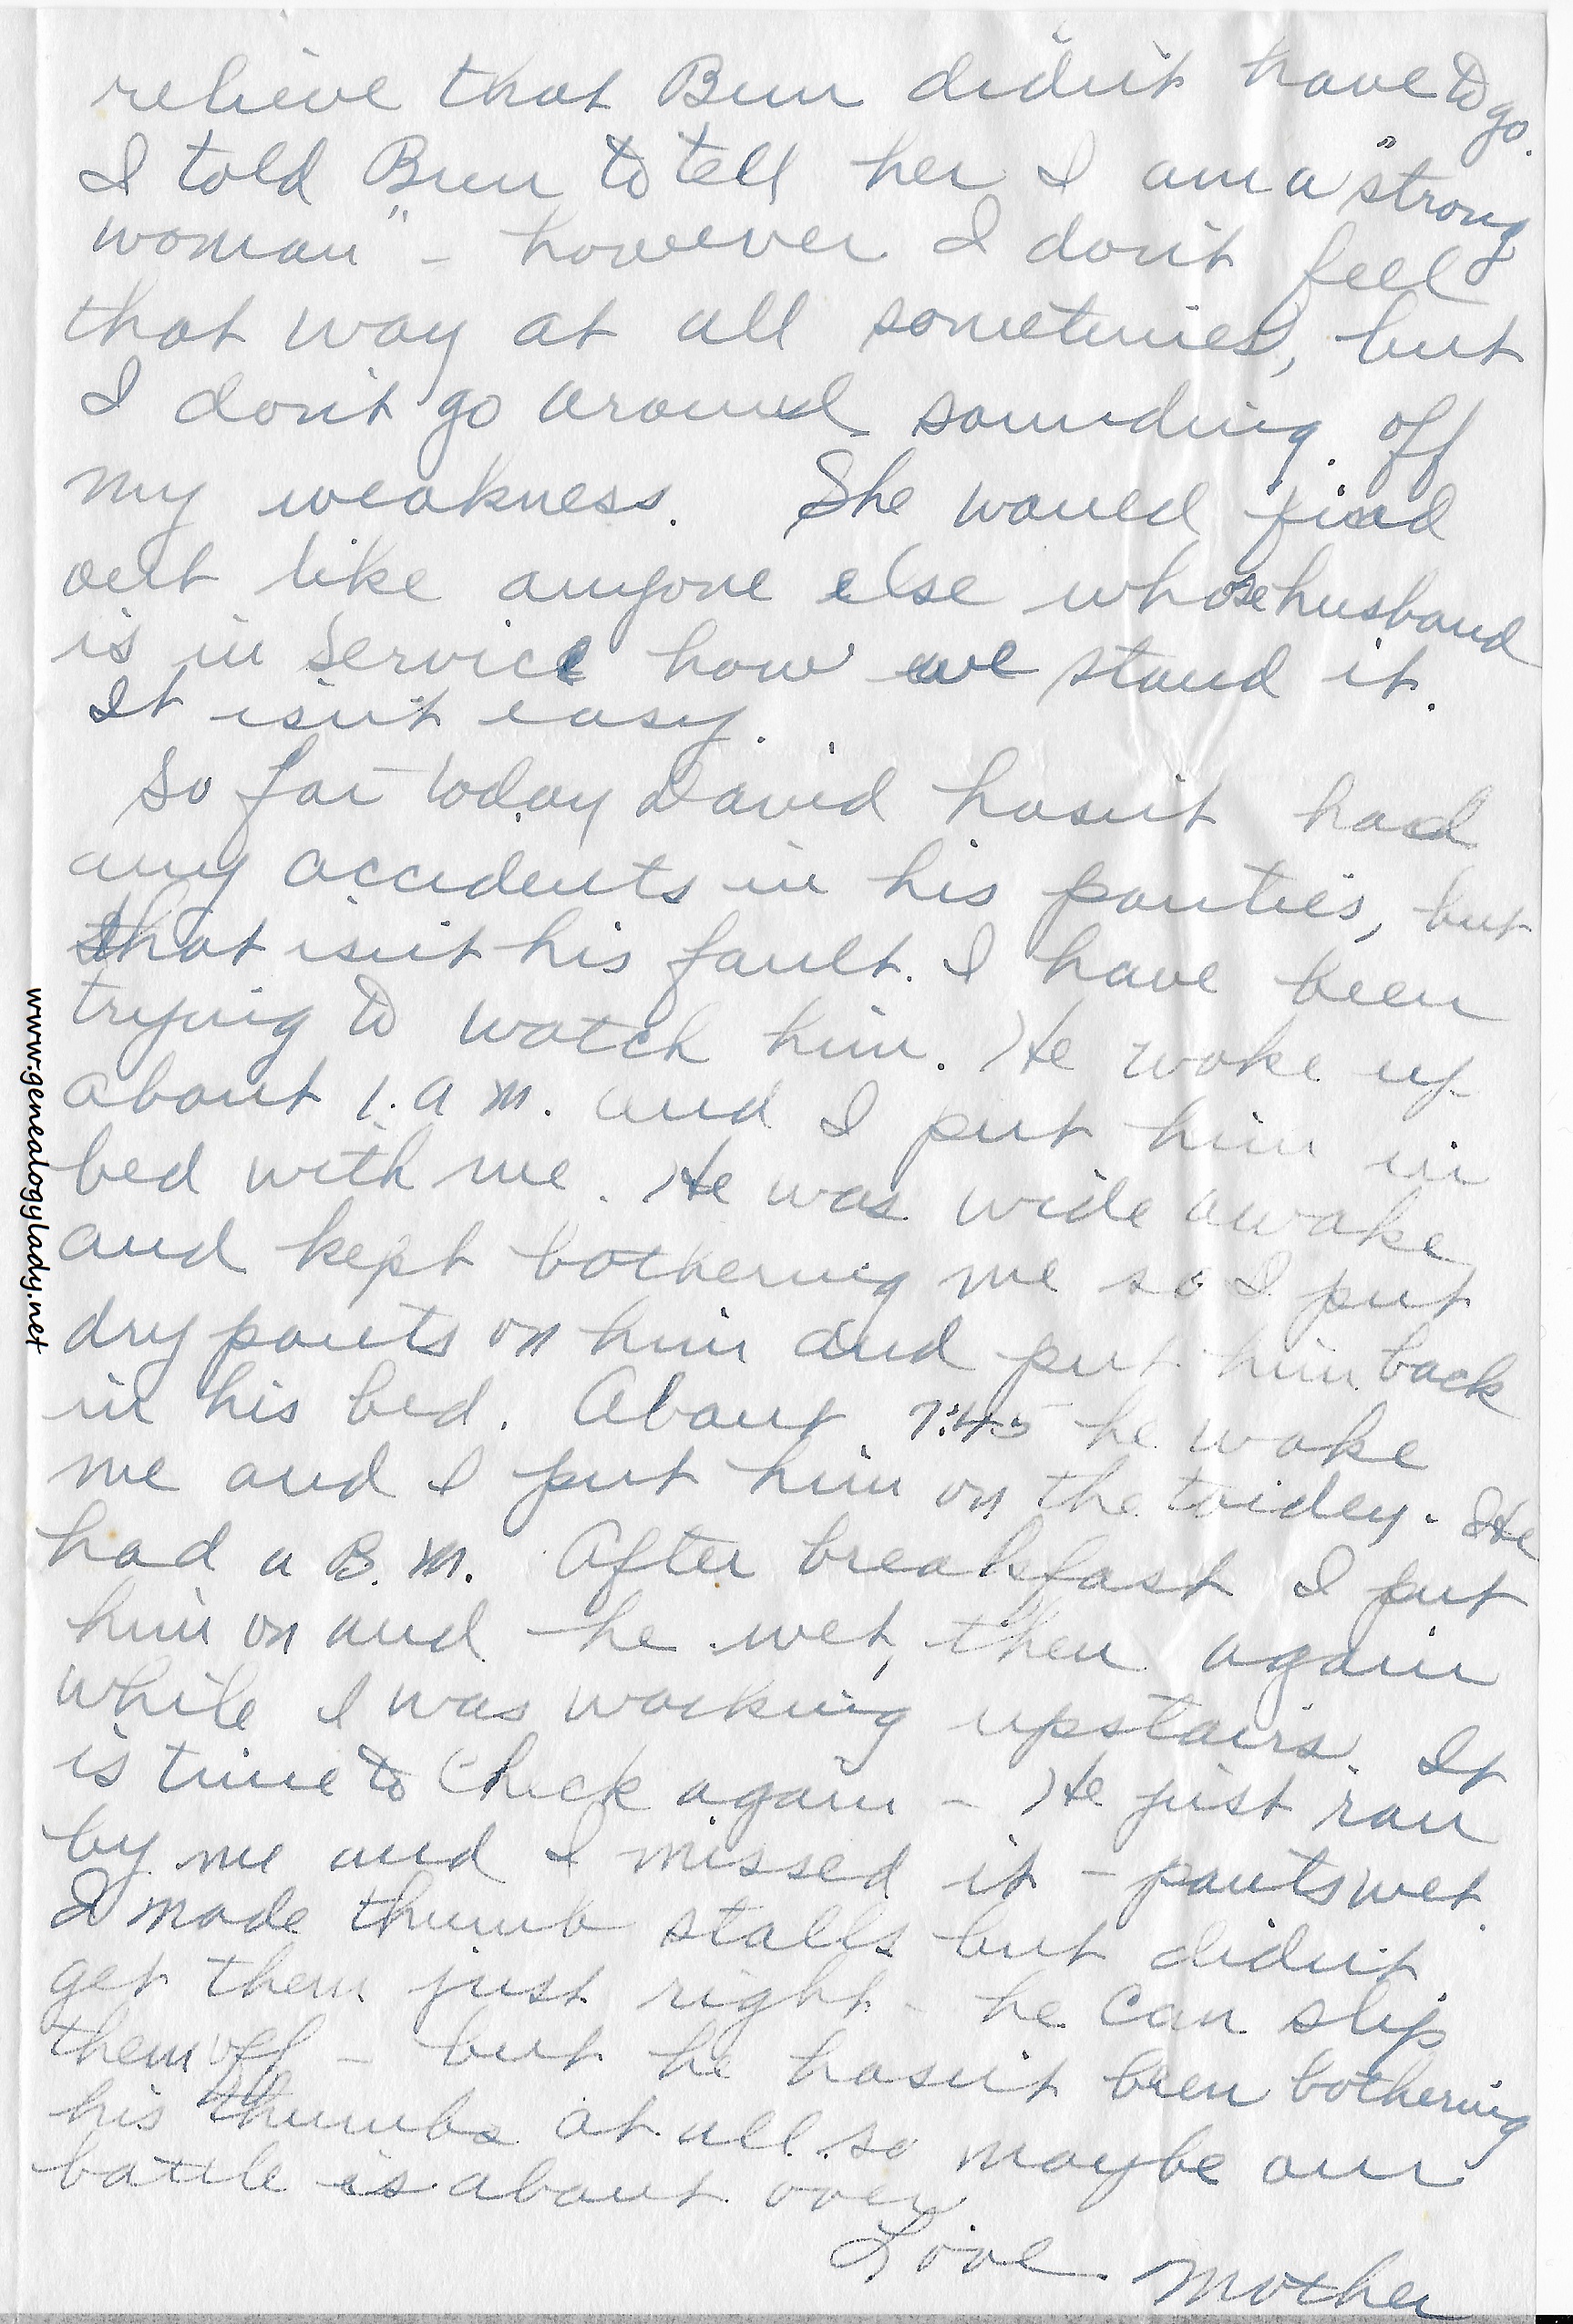 relieve that Bun didn't have to go.
I told Bun to tell her I am a "strong
woman" - however I don't feel
that way at all sometimes, but
I don't go around sounding off
my weakness. She would find
out like anyone else whose husband
is in service how we stand it.
It isn't easy.
So far today David hasn't had
any accidents in his panties, but
that isn't his fault. I have been
trying to watch him. He woke up
about 1. a m. and I put him in
bed with me. He was wide awake
and kept bothering me so I put
dry pants on him and put him back
in his bed. About 7:45 he woke
me and I put him on the toidey. He
had a B.M. After breakfast I put
him on and he wet, then again
while I was working upstairs. It
is time to check again - He just ran
by me and I missed it - pants wet.
I made thumb stalls but didn't
get them just right - he can slip
them off - but he hasn't been bothering
his thumbs at all so maybe our
battle is about over.
Love Mother
www.genealogylady.net